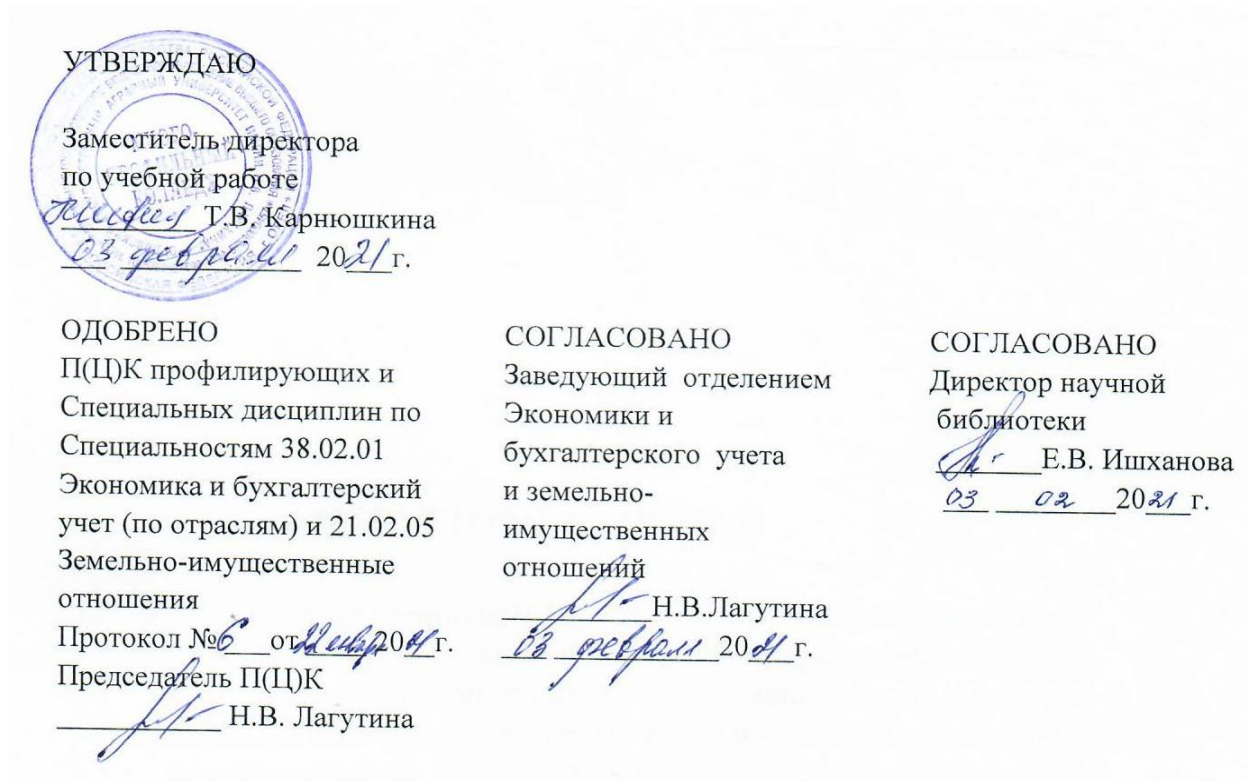 УТВЕРЖДАЮ
Заместитель директора
по учебной работе
Т.В. Карнюшкина
03 февраля 2021г.
ОДОБРЕНО
П(Ц)К профилирующих и
Специальных дисциплин по
Специальностям 38.02.01
Экономика и бухгалтерский
учет (по отраслям) и 21.02.05
Земельно-имущественные
отношения
Протокол №6 от 22 января 2021г.
Председатель П(Ц)К
Н.В. Лагутина
СОГЛАСОВАНО
Заведующий отделением
Экономики и
бухгалтерского учета
и земельно-
имущественных
отношений
Н.В.Лагутина
03 февраля 2021г.
СОГЛАСОВАНО
Директор научной
библиотеки
Е.В. Ишханова
03 02 2021г.